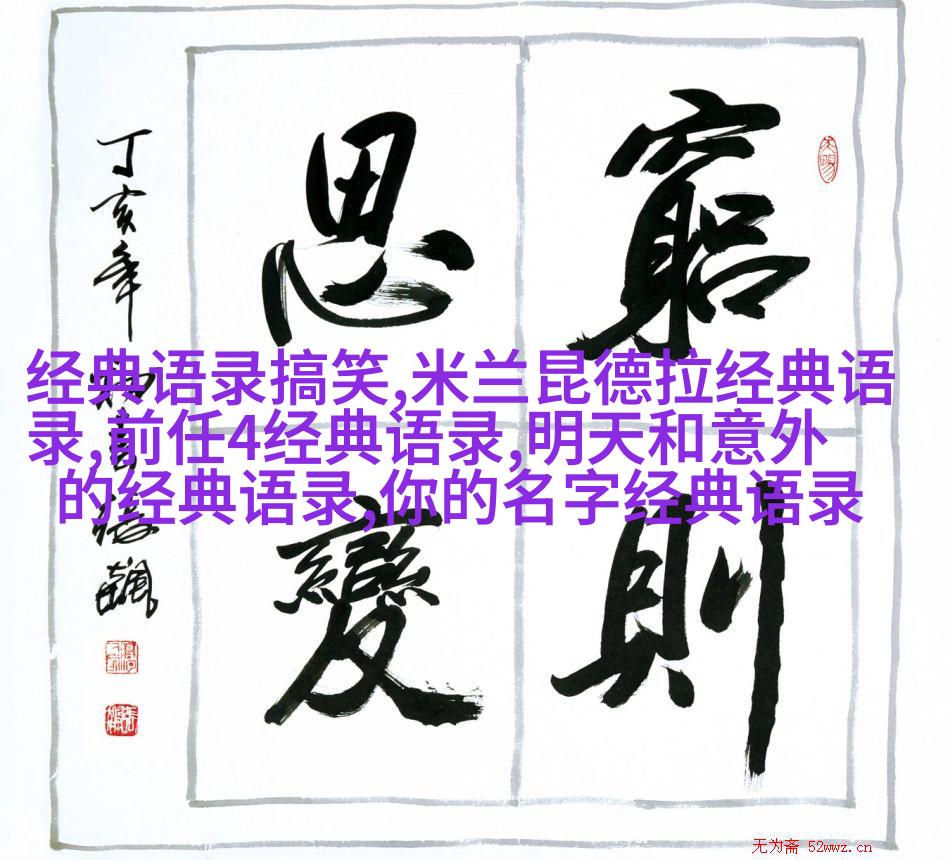 窮則
思變
丁亥年
经典语录搞笑,米兰昆德拉经典语
录,前任4经典语录,明天和意外
的经典语录,你的名字经典语录
无为斋 52wwz.cn